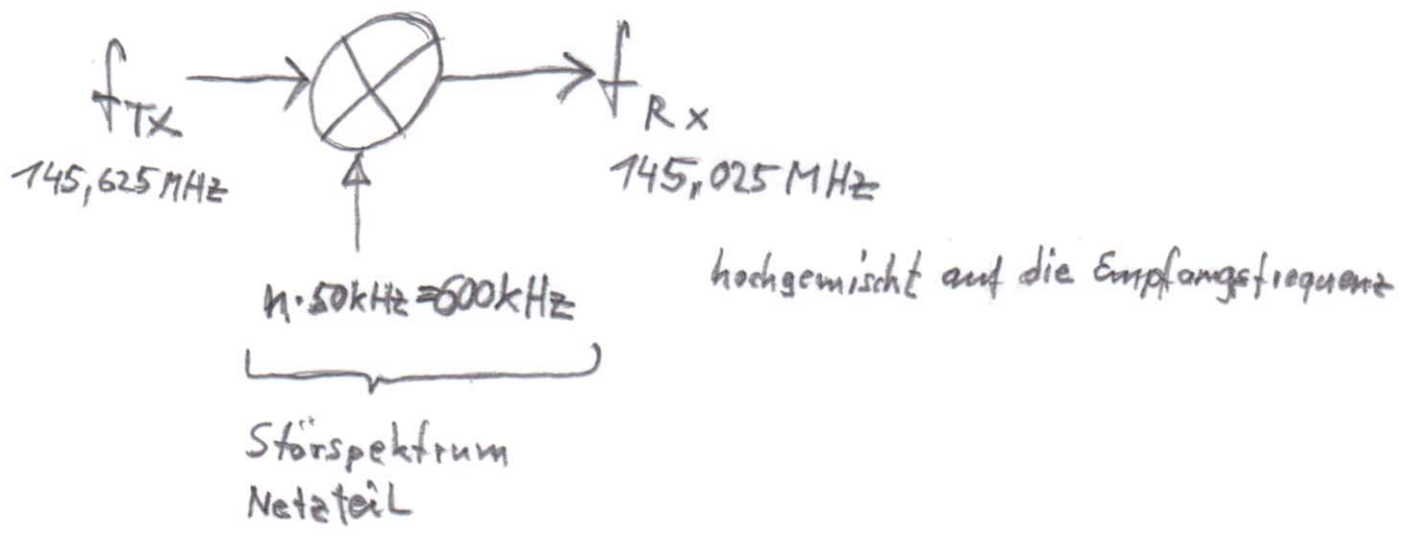 fTx
fRx
145,625MHz
145,025MHz
n·50kHz=600kHz
hochgemischt auf die Empfangsfrequenz
Störspektrum
Netzteil